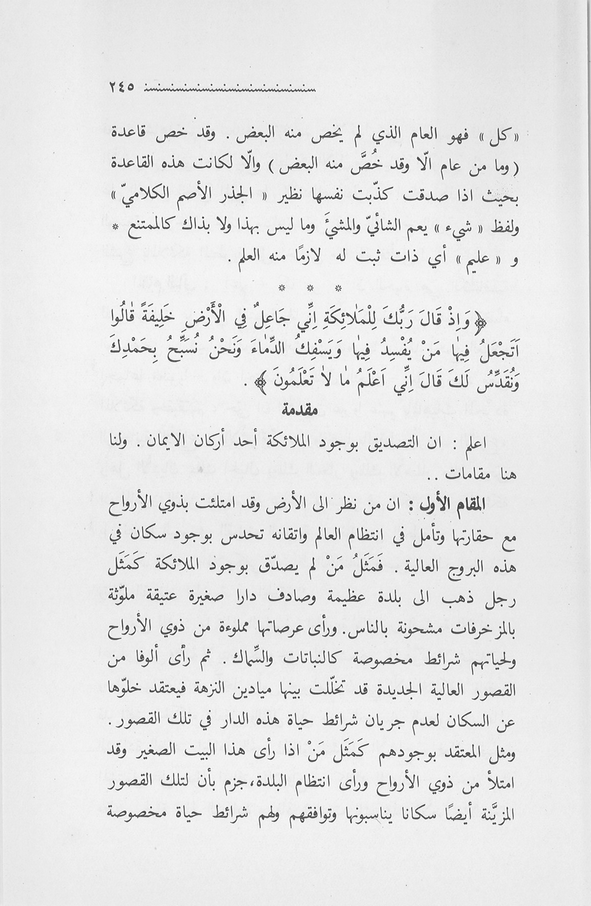 ٢٤٥
«كل» فهو العام الذي لم يخص منه البعض . وقد خص قاعدة
(وما من عام الّا وقد خُصَّ منه البعض) والّا لكانت هذه القاعدة
بحيث اذا صدقت كذّبت نفسها نظير «الجذر الأصم الكلاميّ»
ولفظ «شيء» يعم الشائيّ والمشيَّ وما ليس بهذا ولا بذاك كالممتنع *
و «عليم» أي ذات ثبت له لازمًا منه العلم .
* * *
﴿وَاِذْ قَالَ رَبُّكَ لِلْمَلٰائِكَةِ اِنِّي جَاعِلٌ فِي الْأَرْضِ خَلِيفَةً قٰالُوا
اَتَجْعَلُ فِيهٰا مَنْ يُفْسِدُ فِيهٰا وَيَسْفِكُ الدِّمٰاءَ وَنَحْنُ نُسَبِّحُ بِحَمْدِكَ
وَنُقَدِّسُ لَكَ قَالَ اِنِّي اَعْلَمُ مٰا لاٰ تَعْلَمُونَ﴾ .
مقدمة
اعلم : ان التصديق بوجود الملائكة أحد أركان الايمان . ولنا
هنا مقامات ..
المقام الأول : ان من نظر الى الأرض وقد امتلئت بذوي الأرواح
مع حقارتها وتأمل في انتظام العالم واتقانه تحدس بوجود سكان في
هذه البروج العالية . فَمَثَلُ مَنْ لم يصدّق بوجود الملائكة كَمَثَل
رجل ذهب الى بلدة عظيمة وصادف دارا صغيرة عتيقة ملوّثة
بالمزخرفات مشحونة بالناس. ورأى عرصاتها مملوءة من ذوي الأرواح
ولحياتهم شرائط مخصوصة كالنباتات والسِّماك . ثم رأى ألوفا من
القصور العالية الجديدة قد تخلّلت بينها ميادين النزهة فيعتقد خلوّها
عن السكان لعدم جريان شرائط حياة هذه الدار في تلك القصور .
ومثل المعتقد بوجودهم كَمَثَل مَنْ اذا رأى هذا البيت الصغير وقد
امتلأ من ذوي الأرواح ورأى انتظام البلدة، جزم بأن لتلك القصور
المزيَّنة أيضًا سكانا يناسبونها وتوافقهم ولهم شرائط حياة مخصوصة